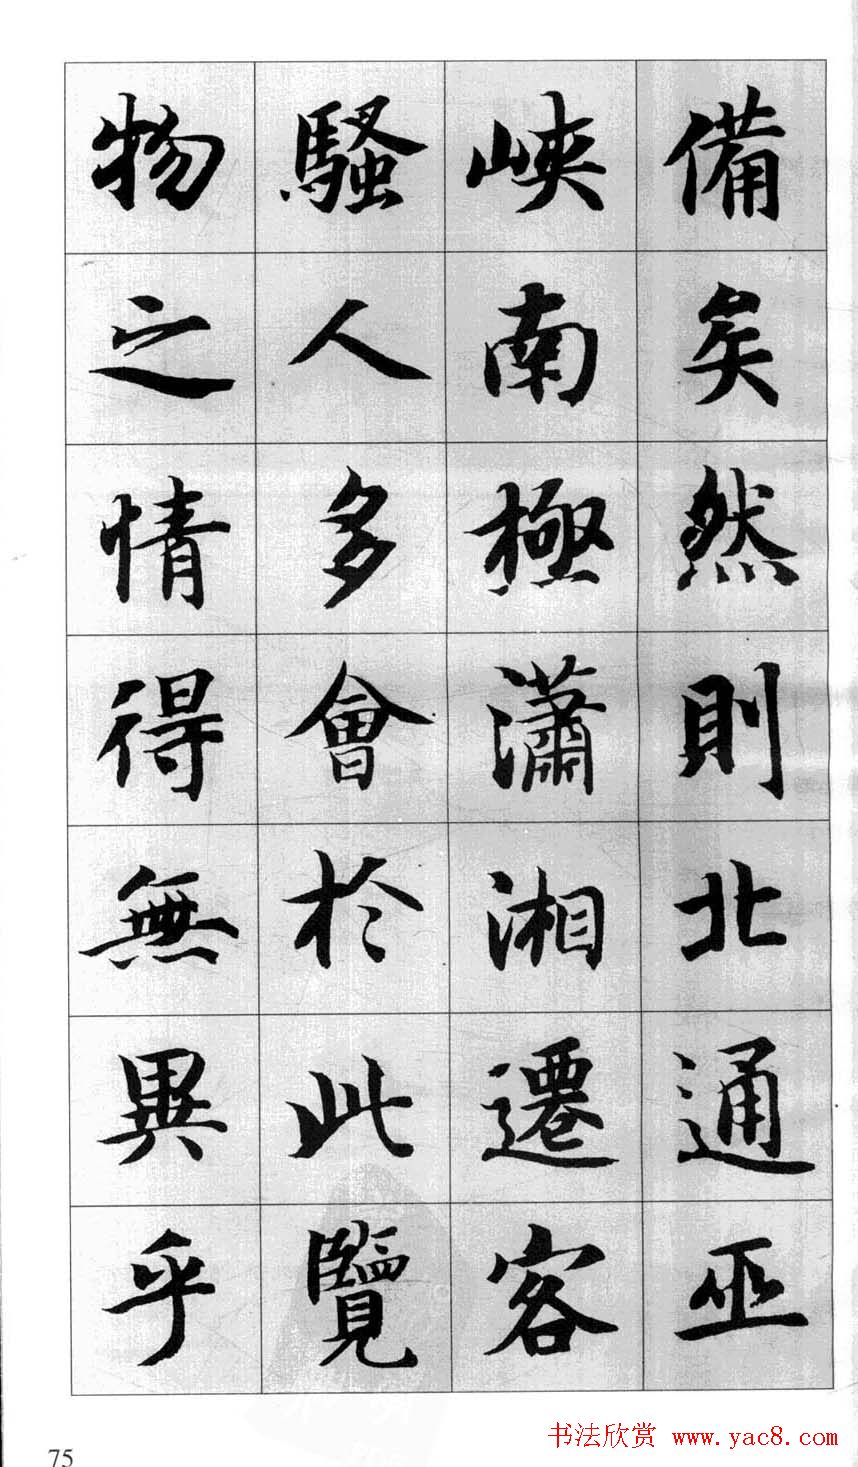 備矣然則北通巫
峽南極瀟湘遷客
騷人多會於此覽
物之情得無異乎
75
书法欣赏 www.yac8.com